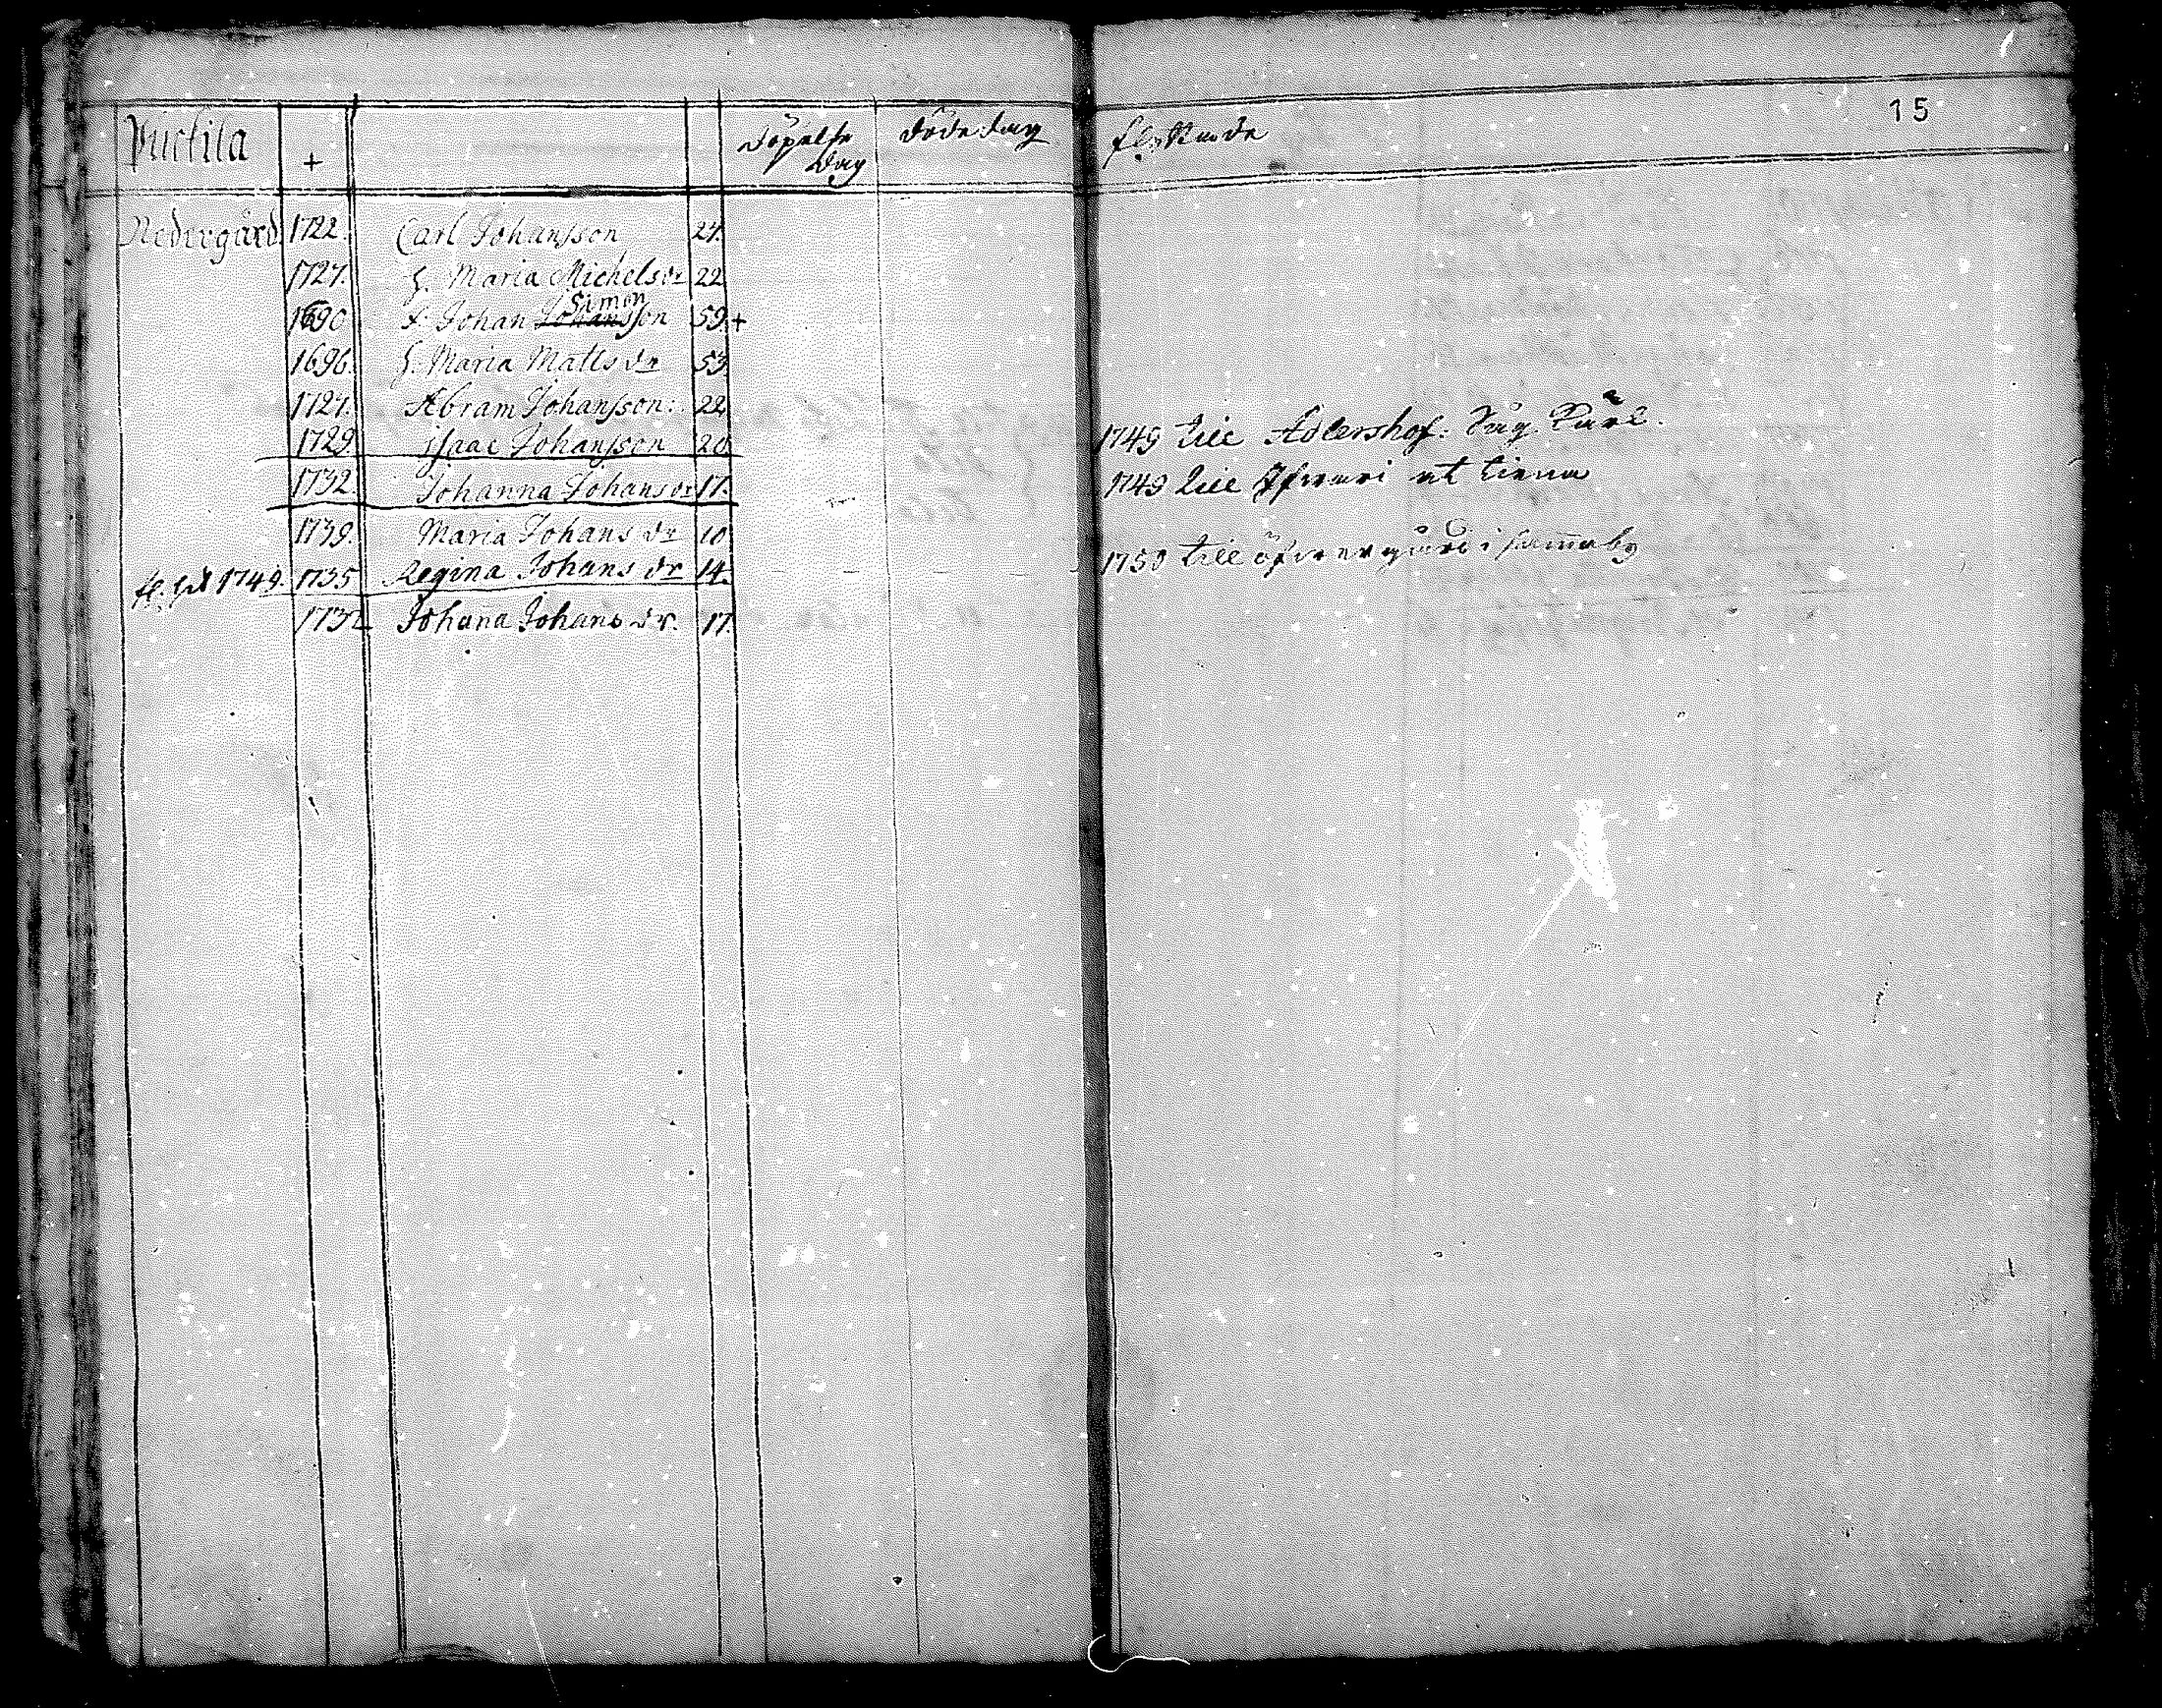 15
+ Döpelse Dödedag flyttande
Dag
Nedergård 1722. Carl Johansson 27.
1727. h. Maria Michelsdr 22
Simon
1690 f. Johan Johansson 59 +
1696. h. Maria Matts dr 53
1727. Abram Johansson: 22
1729 isaac Johansson 20 1749 till Adlershof. Såg.
1732. Johanna Johansdr 17. 1749 till at tiena
1739. Maria Johans dr 10
1749. 1735 Regina Johans dr 14. 1750 till öfvergård i samma by
1732 Johanna Johans dr. 17.